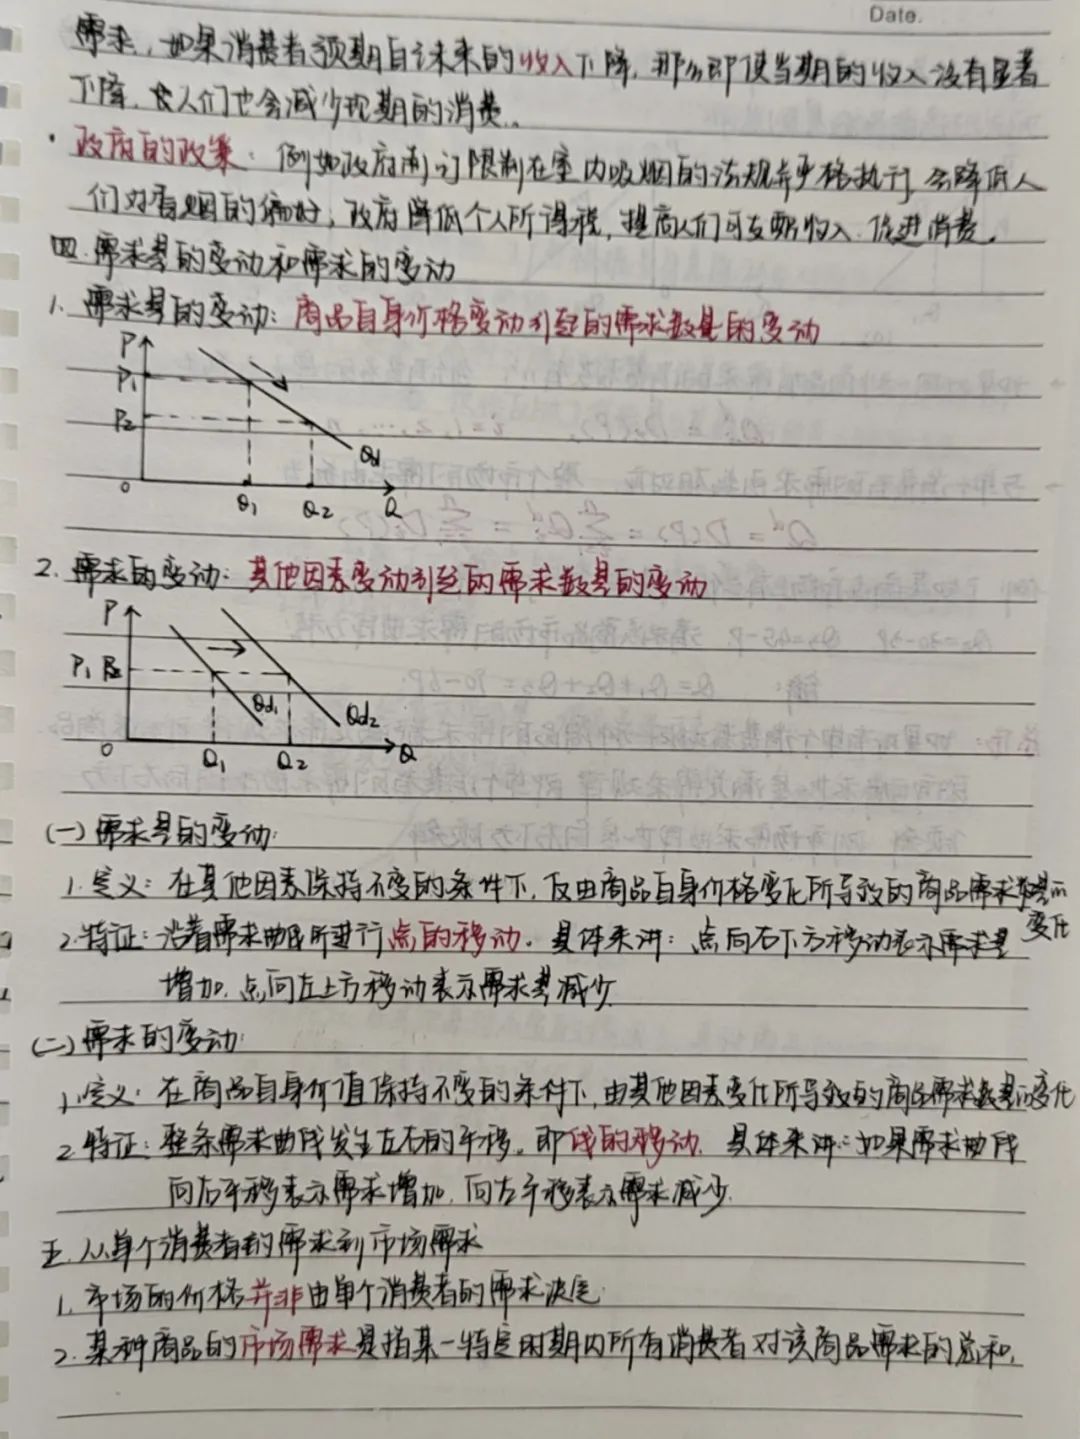 Date.
需求，如果消费者预期自己未来的收入下降，那么即使当期的收入没有显著
下降，人们也会减少现期的消费。
·政府的政策：例如政府制订限制在室内吸烟的法规并严格执行，会降低人
们对香烟的偏好，政府降低个人所得税，提高人们可支配收入，促进消费。
四.需求量的变动和需求的变动
1.需求量的变动：商品自身价格变动引起的需求数量的变动
P
P1
P2
Qd
0 Q1 Q2 Q
2.需求的变动：其他因素变动引起的需求数量的变动
P
P1 P2
Qd1 Qd2
0 Q1 Q2 Q
(一)需求量的变动：
1.定义：在其他因素保持不变的条件下，仅由商品自身价格变化所导致的商品需求数量的
变化
2.特征：沿着需求曲线所进行点的移动。具体来讲：点向右下方移动表示需求量
增加，点向左上方移动表示需求量减少
(二)需求的变动：
1.定义：在商品自身价值保持不变的条件下，由其他因素变化所导致的商品需求数量的变化
2.特征：整条需求曲线发生左右的平移。即线的移动。具体来讲：如果需求曲线
向右平移表示需求增加，向左平移表示需求减少.
五.从单个消费者的需求到市场需求
1.市场的价格并非由单个消费者的需求决定.
2.某种商品的市场需求是指某一特定时期内所有消费者对该商品需求的总和.